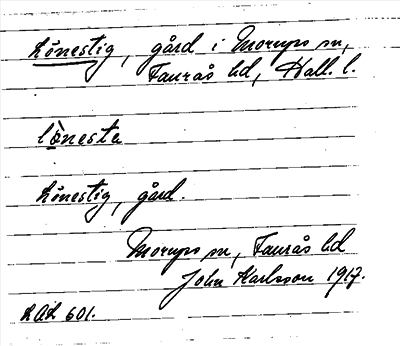 Lönestig, gård i Morups sn,
Faurås hd, Hall. l.
lö̀nestɩ
Lönestig, gård.
Morups sn, Faurås hd
John Karlsson 1917.
LAL 601.